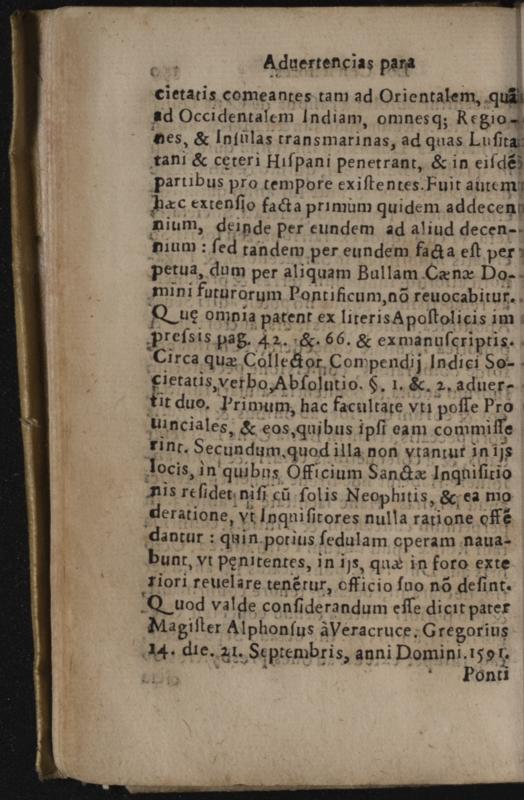 Aduertencias para
cietatis comeantes tam ad Orientalem, quã
ad Occidentalem Indiam, omnesq; Regio-
nes, & Insulas transmarinas, ad quas Lusita
tani & cęteri Hispani penetrant, & in eisdẽ
partibus pro tempore existentes. Fuit autem
hæc extensio facta primùm quidem ad decen
nium, deinde per eundem ad aliud decen-
nium : sed tandem per eundem facta est per
petua, dum per aliquam Bullam Cænæ Do-
mini futurorum Pontificum, nõ reuocabitur.
Quę omnia patent ex literis Apostolicis im
pressis pag. 42. &. 66. & ex manuscriptis.
Circa quæ Collector Compendij Indici So-
cietatis, verbo, Absolutio. §. 1. &. 2. aduer-
tit duo. Primum, hac facultate vti posse Pro
uinciales, & eos, quibus ipsi eam commisse
rint. Secundum, quod illa non vtantur in ijs
locis, in quibus Officium Sanctæ Inquisitio
nis residet nisi cũ solis Neophitis, & ea mo
deratione, vt Inquisitores nulla ratione offẽ
dantur : quin potius sedulam operam naua-
bunt, vt pęnitentes, in ijs, quæ in foro exte
riori reuelare tenẽtur, officio suo nõ desint.
Quod valde considerandum esse dicit pater
Magister Alphonsus à Veracruce. Gregorius
14. die. 21. Septembris, anni Domini. 1591.
Ponti